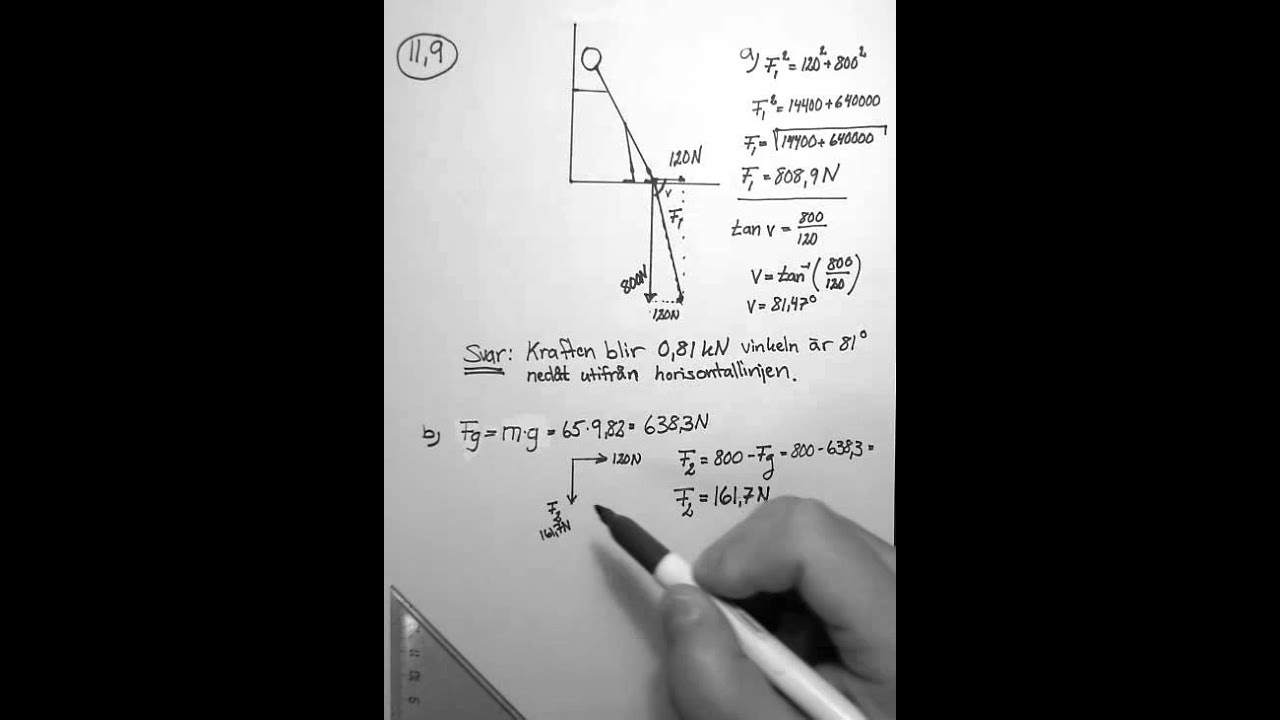 11,9
a) F₁² = 120² + 800²
F₁² = 14400 + 640000
F₁ = √14400 + 640000
F₁ = 808,9 N
120N
v
F₁
800N
120N
tan v = 800/120
V = tan⁻¹(800/120)
V = 81,47°
Svar: Kraften blir 0,81 kN vinkeln är 81°
nedåt utifrån horisontallinjen.
b) Fg = m·g = 65·9,82 = 638,3N
120N
F₂
161,7N
F₂ = 800 - Fg = 800 - 638,3 =
F₂ = 161,7N
11 10 9